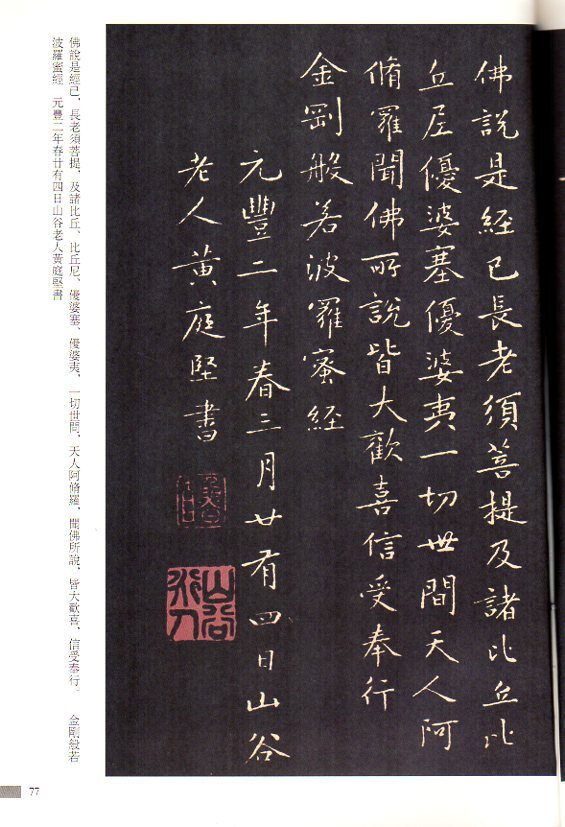 佛說是經已長老須菩提及諸比丘比
丘尼優婆塞優婆夷一切世間天人阿
脩羅聞佛所說皆大歡喜信受奉行
金剛般若波羅蜜經
元豐二年春三月廿有四日山谷
老人黃庭堅書
山谷
佛說是經已、長老須菩提、及諸比丘、比丘尼、優婆塞、優婆夷、一切世間、天人阿脩羅、聞佛所說、皆大歡喜、信受奉行。 金剛般若
波羅蜜經 元豐二年春廿有四日山谷老人黃庭堅書
77